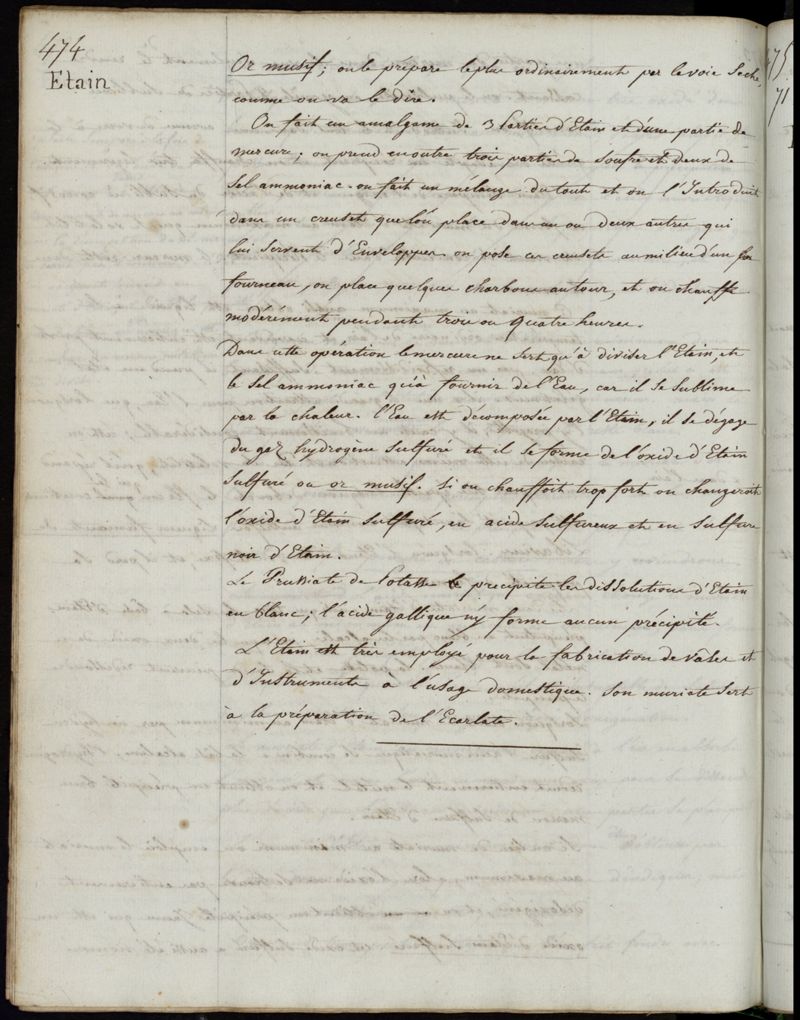 474
Etain
Or musif; on le prépare le plus ordinairement par la voie Seche,
comme on va le dire.
On fait un amalgame de 3 Parties d'Etain et d'une partie de
mercure; on prend en outre trois parties de Soufre et deux de
Sel ammoniac. on fait un mélange du tout et on l'Introduit
dans un creuset que l'on place dans un ou deux autres qui
lui Servent d'Enveloppes. on pose ces creusets au milieu d'un
fourneau, on place quelques charbons autour, et on chauffe
modérément pendant trois ou quatre heures.
Dans cette opération le mercure ne Sert qu'à diviser l'Etain, et
le Sel ammoniac qu'à fournir de l'Eau, car il Se Sublime
par la chaleur. l'Eau est décomposée par l'Etain, il Se dégage
du gaz hydrogène Sulfuré et il Se forme de l'oxide d'Etain
Sulfuré ou or musif. Si on chauffoit trop fort on changeroit
l'oxide d'Etain Sulfuré, en acide Sulfureux et en Sulfure
noir d'Etain.
Le Prussiate de Potasse precipite les dissolutions d'Etain
en blanc; l'acide gallique n'y forme aucun précipité.
L'Etain est très employé pour la fabrication de vases et
d'Instrumens à l'usage domestique. Son muriate Sert
à la préparation de l'Ecarlate.
475
71